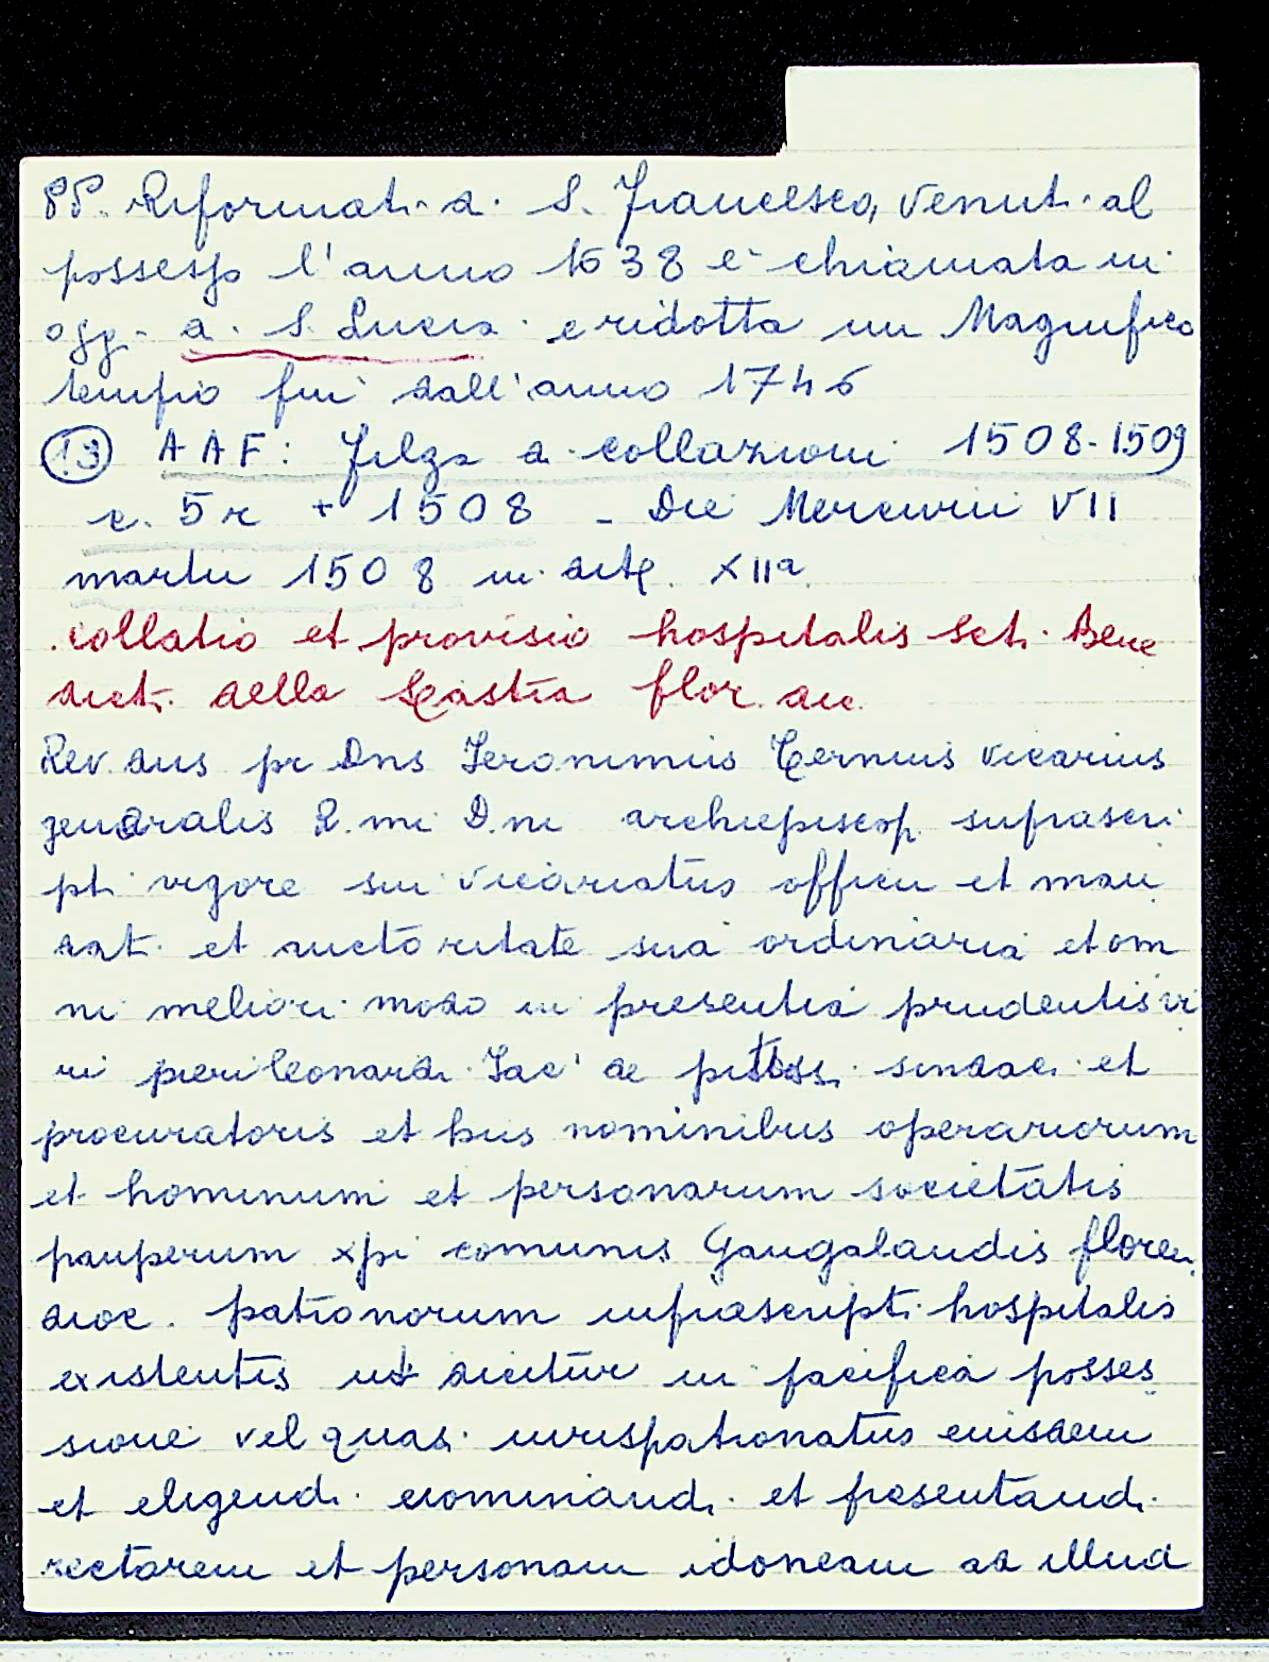 PP. Riformati di S. Francesco, venuti al
possesso l'anno 1638 è chiamata in
oggi di S. Lucia e ridotta un Magnifico
tempio fin dall'anno 1746
(13) AAF: Filza di collazioni 1508-1509
c. 5r + 1508 - Die Mercurii VII
martii 1508 ind. XIIa
collatio et provisio hospitalis Scti Bene
dicti della Lastra flor. dic.
Rev. dus pr Dns Jeronimus vicarius
generalis R.mi D.ni archiepiscopi suprascri
pti vigore sui vicariatus officii et man
dati et auctoritate sua ordinaria et om
ni meliori modo in presentia prudentis vi
ri pieri Leonardi Jac' de sindaci et
procuratoris et hiis nominibus operariorum
et hominum et personarum societatis
pauperum xpi comunis Gangalandis floren.
dioc. patronorum infrascripti hospitalis
existentis ut dicitur in pacifica posses
sione vel quasi iurispatronatus eiusdem
et eligendi nominandi et presentandi
rectorem et personam idoneam ad illud